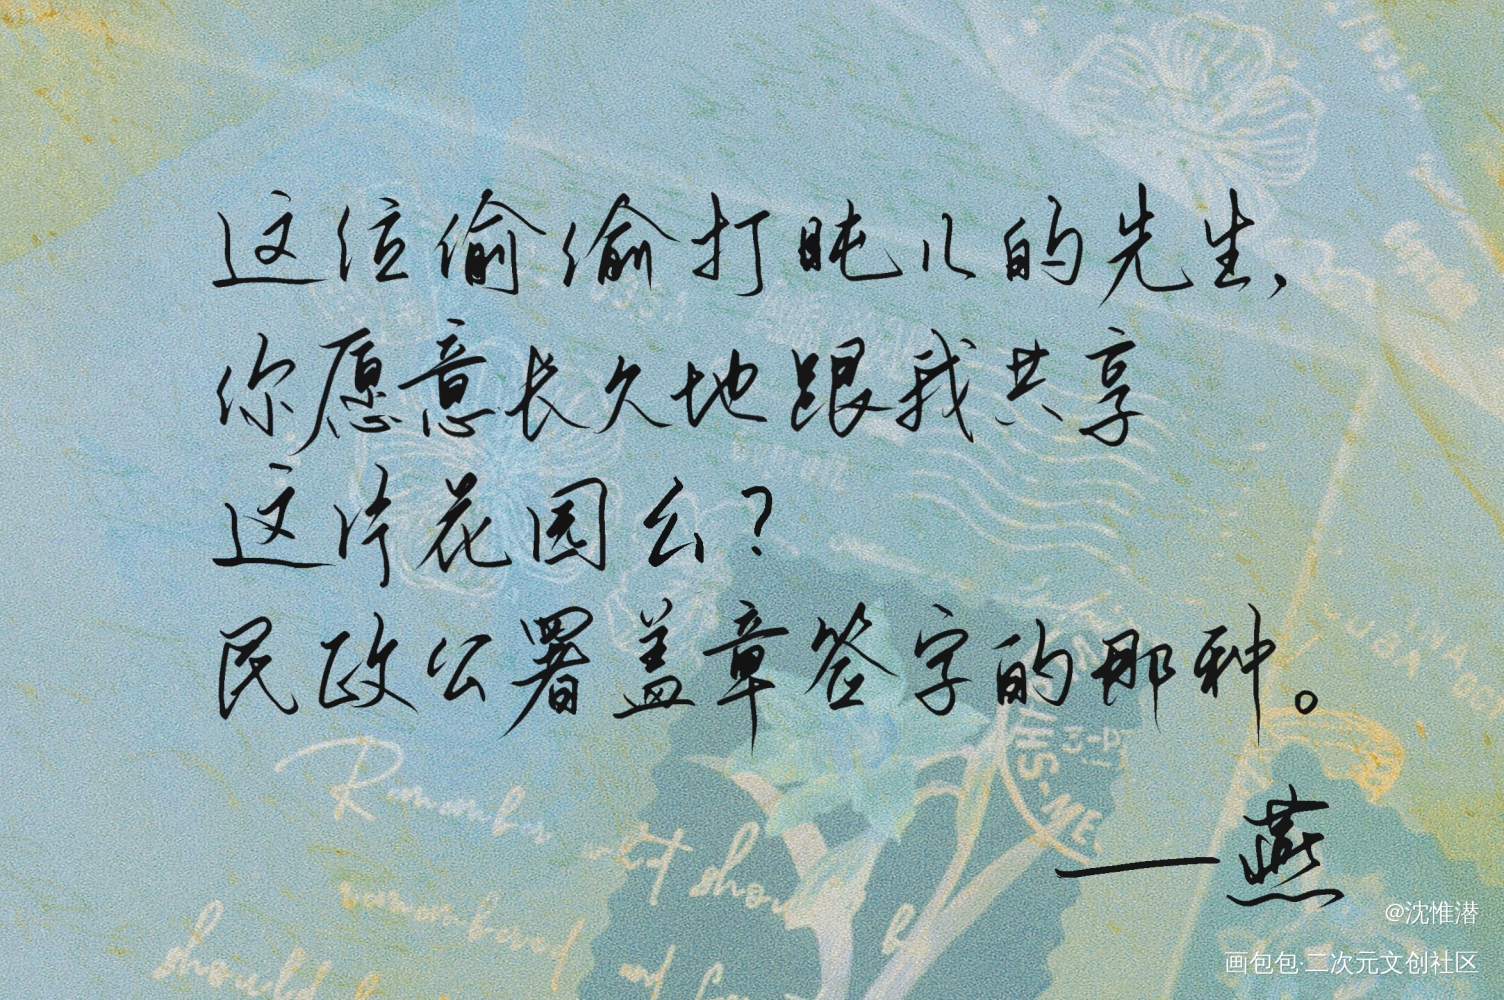 这位偷偷打盹儿的先生，
你愿意长久地跟我共享
这片花园么？
民政公署盖章签字的那种。
——燕
@沈惟潜
画包包·二次元文创社区
Remember